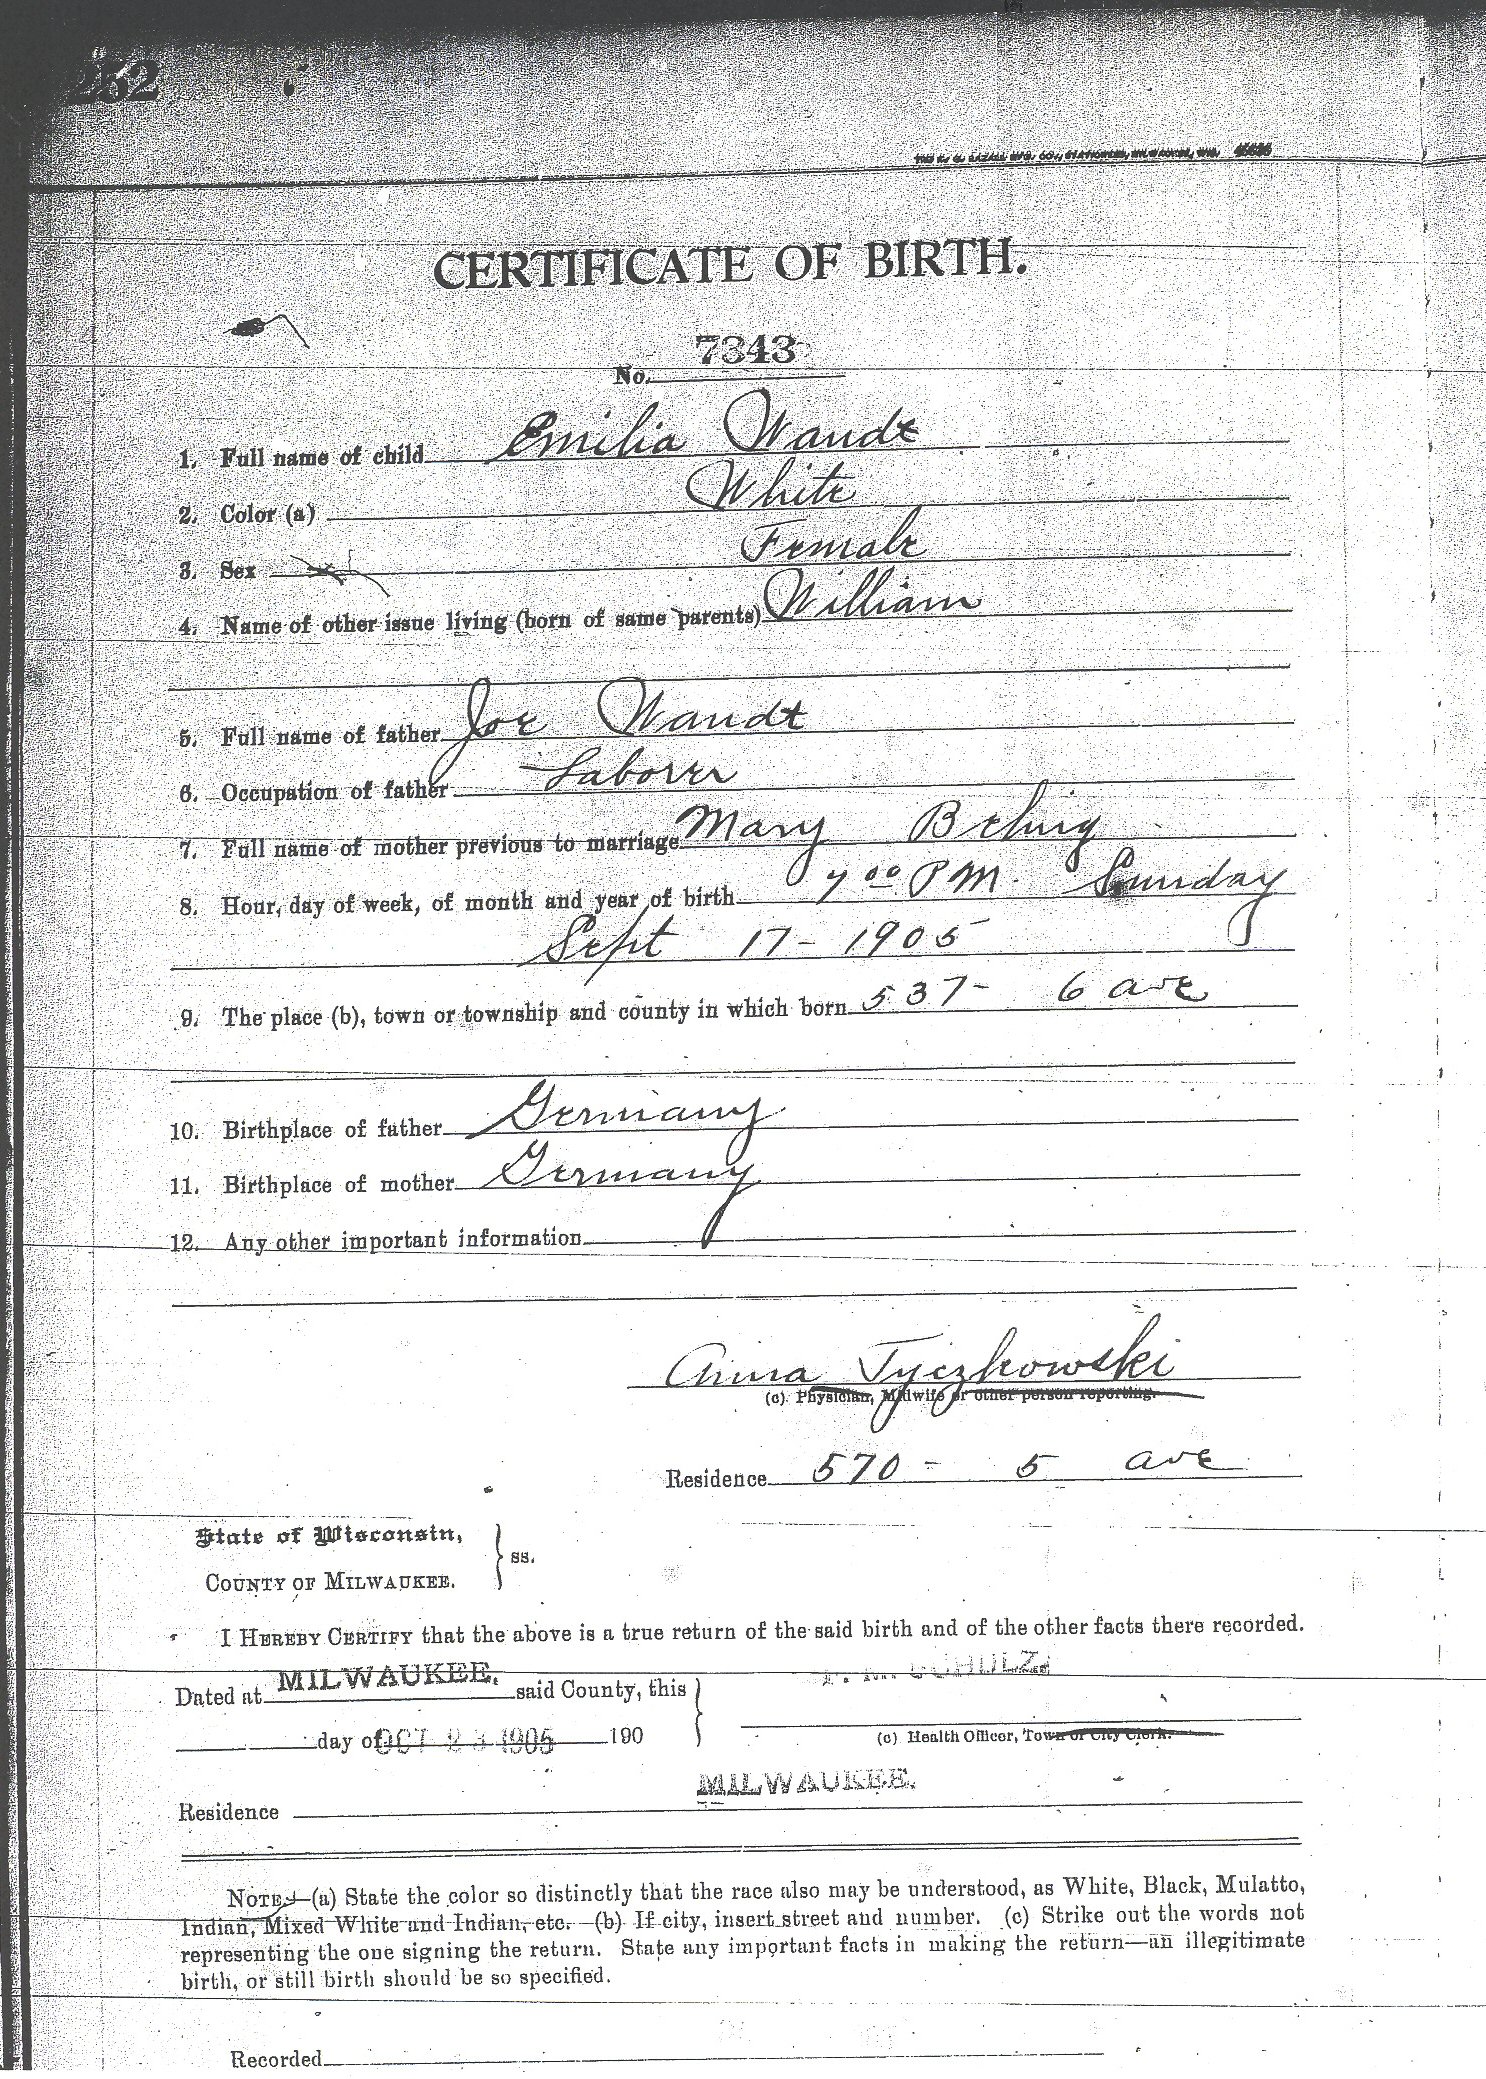 252
CERTIFICATE OF BIRTH.
No. 7343
1. Full name of child Emilia Wandt
2. Color (a) White
3. Sex Female
4. Name of other issue living (born of same parents) William
5. Full name of father Joe Wandt
6. Occupation of father Laborer
7. Full name of mother previous to marriage Mary Behnig
8. Hour, day of week, of month and year of birth 7 00 PM. Sunday
Sept 17 - 1905
9. The place (b), town or township and county in which born 537 - 6 ave
10. Birthplace of father Germany
11. Birthplace of mother Germany
12. Any other important information
Anna Tyczkowski
(c) Physician, Midwife or other person reporting.
Residence 570 - 5 ave
State of Wisconsin,
COUNTY OF MILWAUKEE. } ss.
I HEREBY CERTIFY that the above is a true return of the said birth and of the other facts there recorded.
Dated at MILWAUKEE, said County, this
F. M. SCHULZ,
day of OCT 23 1905 190
(c) Health Officer, Town or City Clerk.
MILWAUKEE.
Residence
NOTE.—(a) State the color so distinctly that the race also may be understood, as White, Black, Mulatto,
Indian, Mixed White and Indian, etc. (b) If city, insert street and number. (c) Strike out the words not
representing the one signing the return. State any important facts in making the return—an illegitimate
birth, or still birth should be so specified.
Recorded